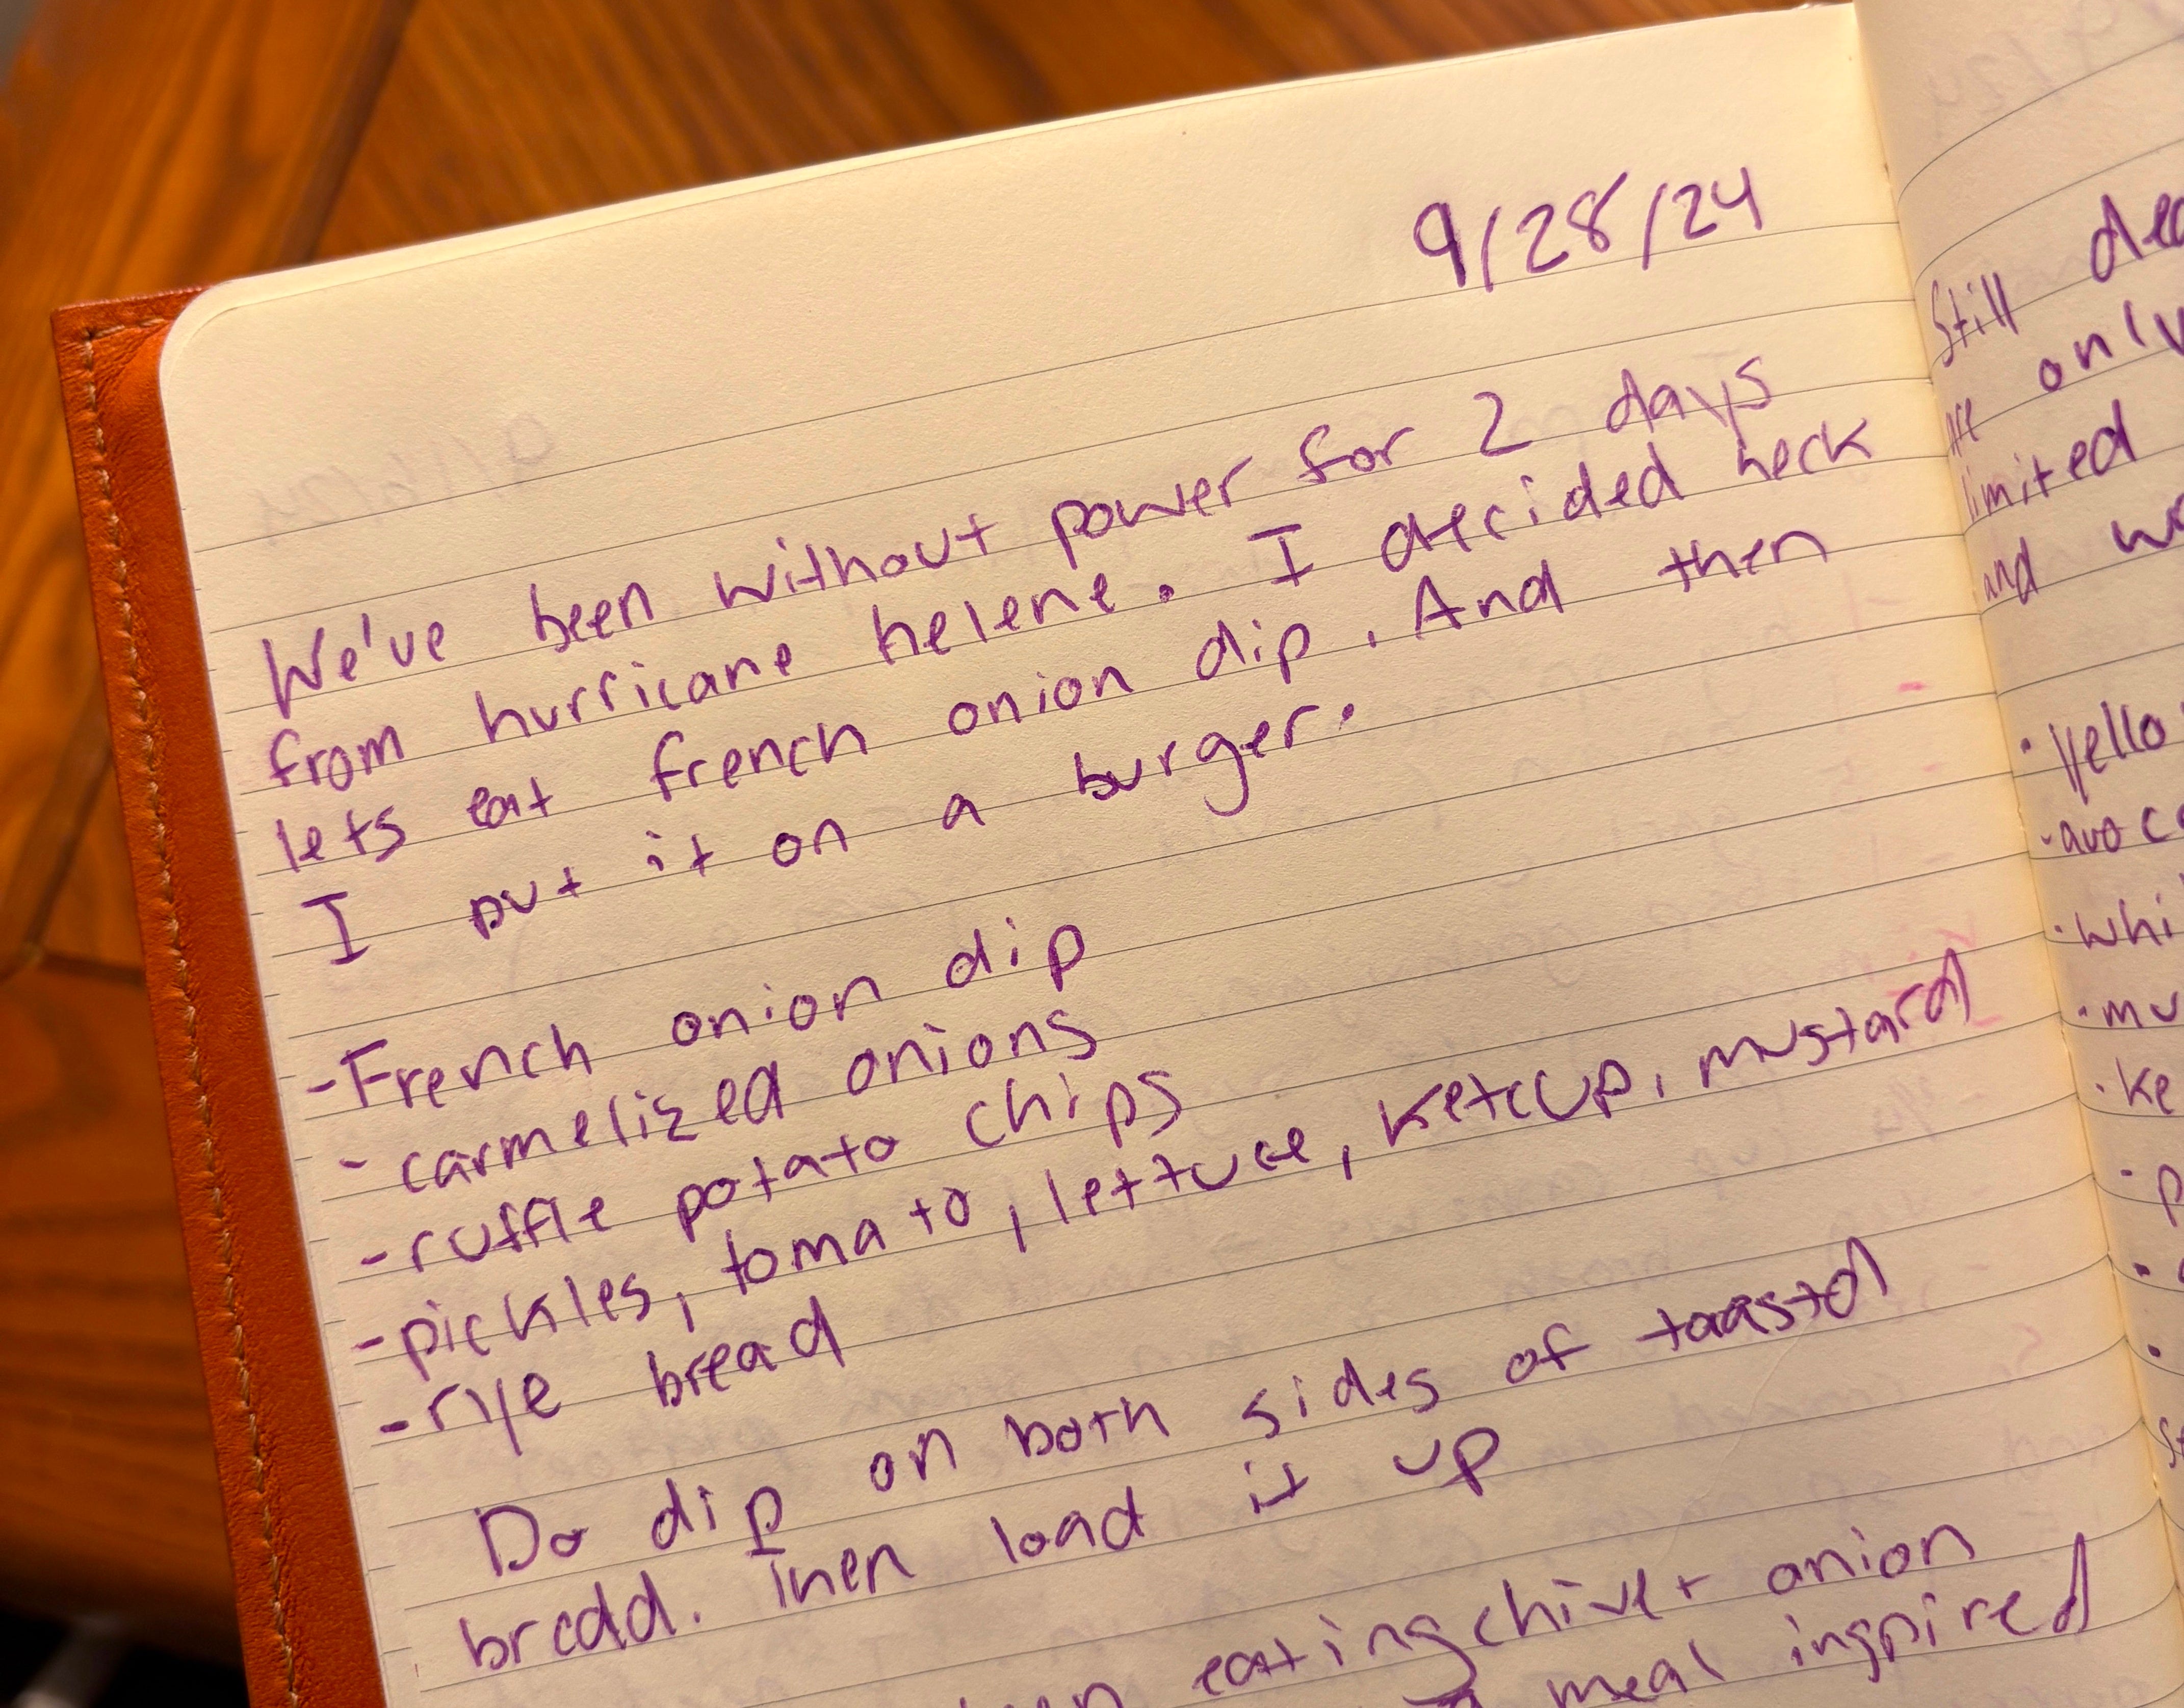 9/28/24
We've been without power for 2 days
from hurricane helene. I decided heck
lets eat french onion dip. And then
I put it on a burger.
-French onion dip
- carmelized onions
-ruffle potato chips
-pickles, tomato, lettuce, ketcup, mustard
-rye bread
Do dip on both sides of toastd
bredd. Then load it up
eating chive + onion
meal inspired
Still
only
limited
and